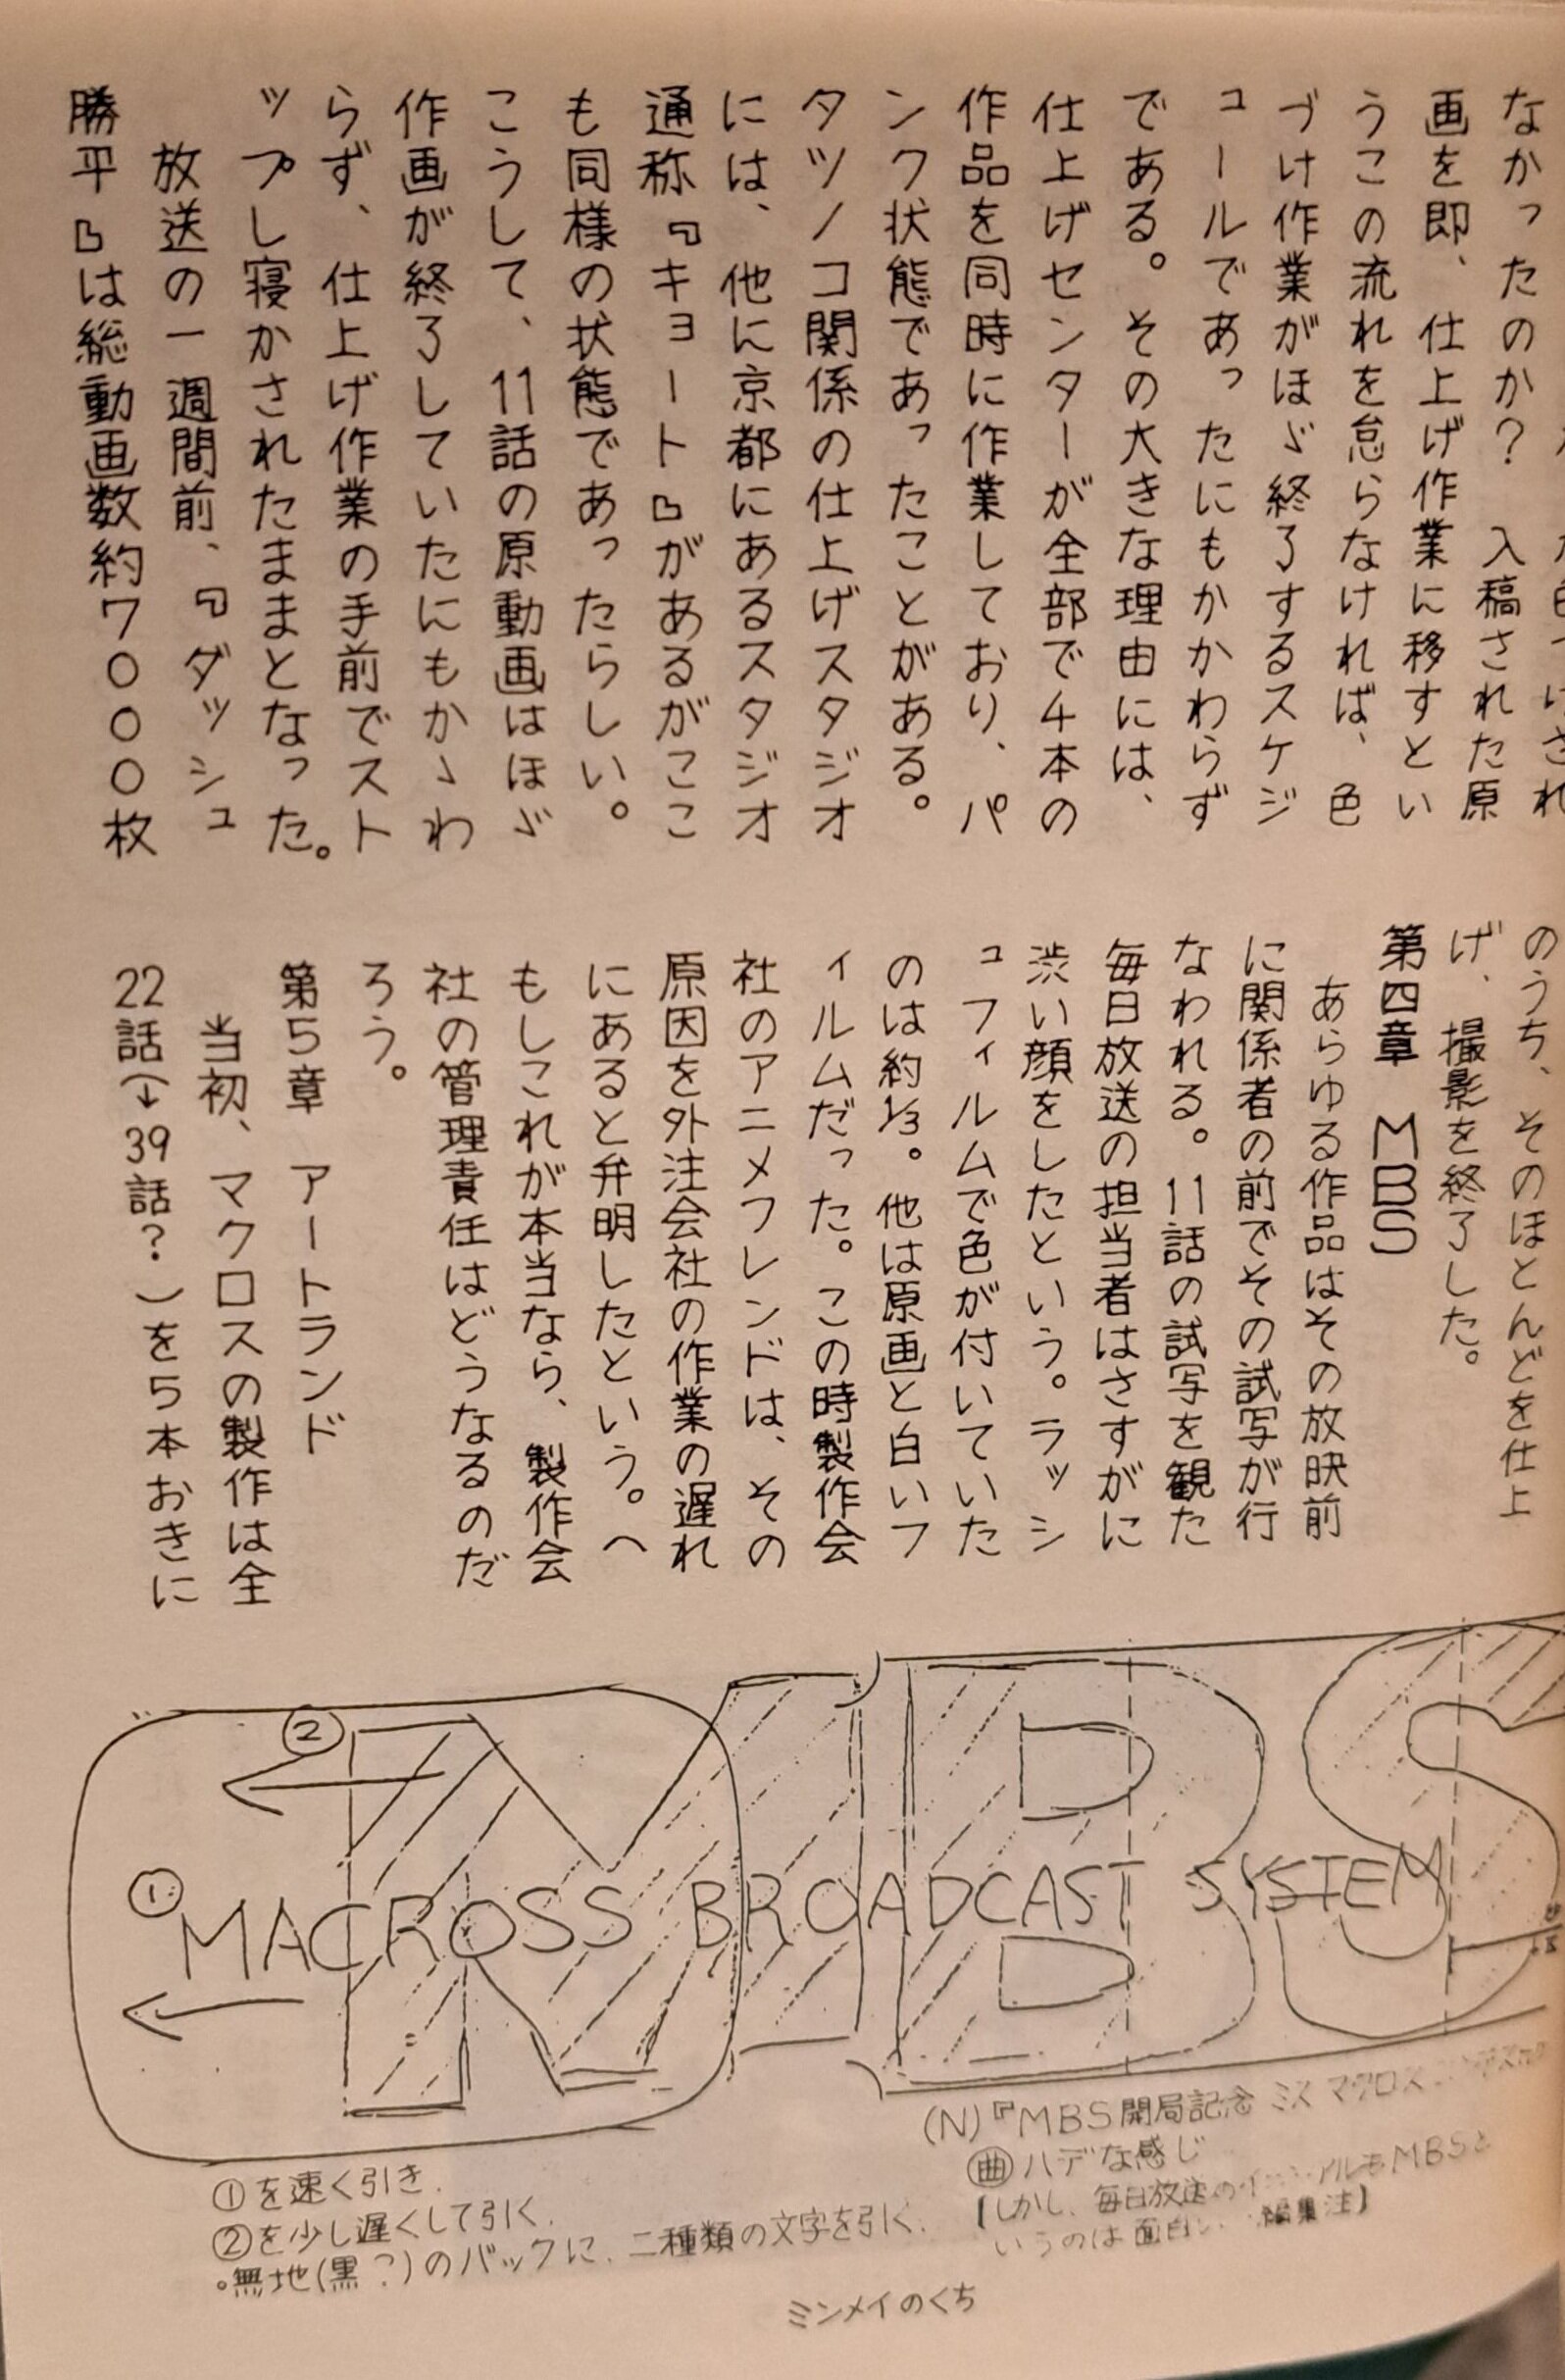 なかったのか？　入稿された原
画を即、仕上げ作業に移すとい
うこの流れを怠らなければ、色
づけ作業がほゞ終了するスケジ
ュールであったにもかかわらず
である。その大きな理由には、
仕上げセンターが全部で4本の
作品を同時に作業しており、パ
ンク状態であったことがある。
タツノコ関係の仕上げスタジオ
には、他に京都にあるスタジオ
通称『キョート』があるがここ
も同様の状態であったらしい。
こうして、11話の原動画はほゞ
作画が終了していたにもかゝわ
らず、仕上げ作業の手前でスト
ップし寝かされたままとなった。
放送の一週間前、『ダッシュ
勝平』は総動画数約7000枚
のうち、そのほとんどを仕上
げ、撮影を終了した。
第四章　MBS
あらゆる作品はその放映前
に関係者の前でその試写が行
なわれる。11話の試写を観た
毎日放送の担当者はさすがに
渋い顔をしたという。ラッシ
ュフィルムで色が付いていた
のは約⅓。他は原画と白いフ
ィルムだった。この時製作会
社のアニメフレンドは、その
原因を外注会社の作業の遅れ
にあると弁明したという。へ
もしこれが本当なら、製作会
社の管理責任はどうなるのだ
ろう。
第5章　アートランド
当初、マクロスの製作は全
22話（→39話？）を5本おきに
②
①
MACROSS BROADCAST SYSTEM
MBS
(N)『MBS開局記念 ミス マクロス
㊥ハデな感じ
【しかし、毎日放送のイニシャルもMBSと
いうのは面白い 編集注】
①を速く引き.
②を少し遅くして引く.
。無地(黒?)のバックに、二種類の文字を引く.
ミンメイのくち